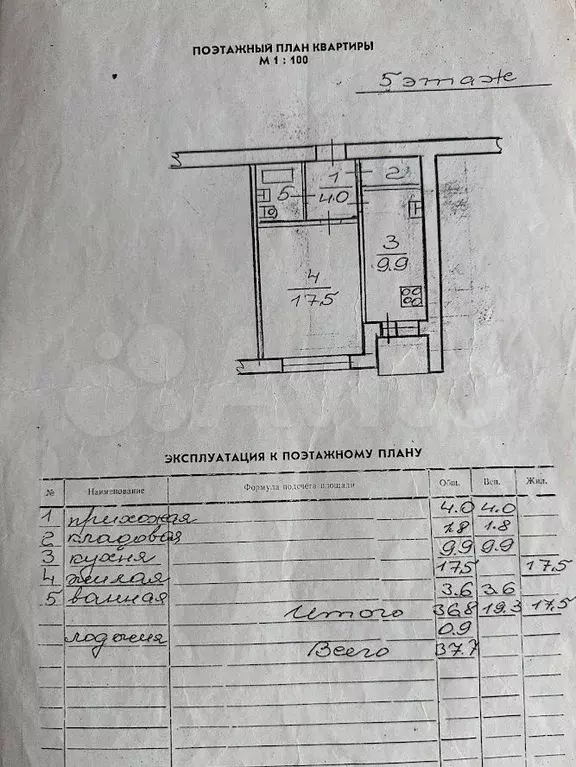 ПОЭТАЖНЫЙ ПЛАН КВАРТИРЫ
М 1 : 100
5 этаж
1
4.0
2
5
3
9.9
4
17.5
ЭКСПЛУАТАЦИЯ К ПОЭТАЖНОМУ ПЛАНУ
№ Наименование Формула подсчета площади Общ. Всп. Жил.
1 прихожая 4.0 4.0
2 кладовая 1.8 1.8
3 кухня 9.9 9.9
4 жилая 17.5 17.5
5 ванная 3.6 3.6
Итого 36.8 19.3 17.5
лоджия 0.9
Всего 37.7
Avito